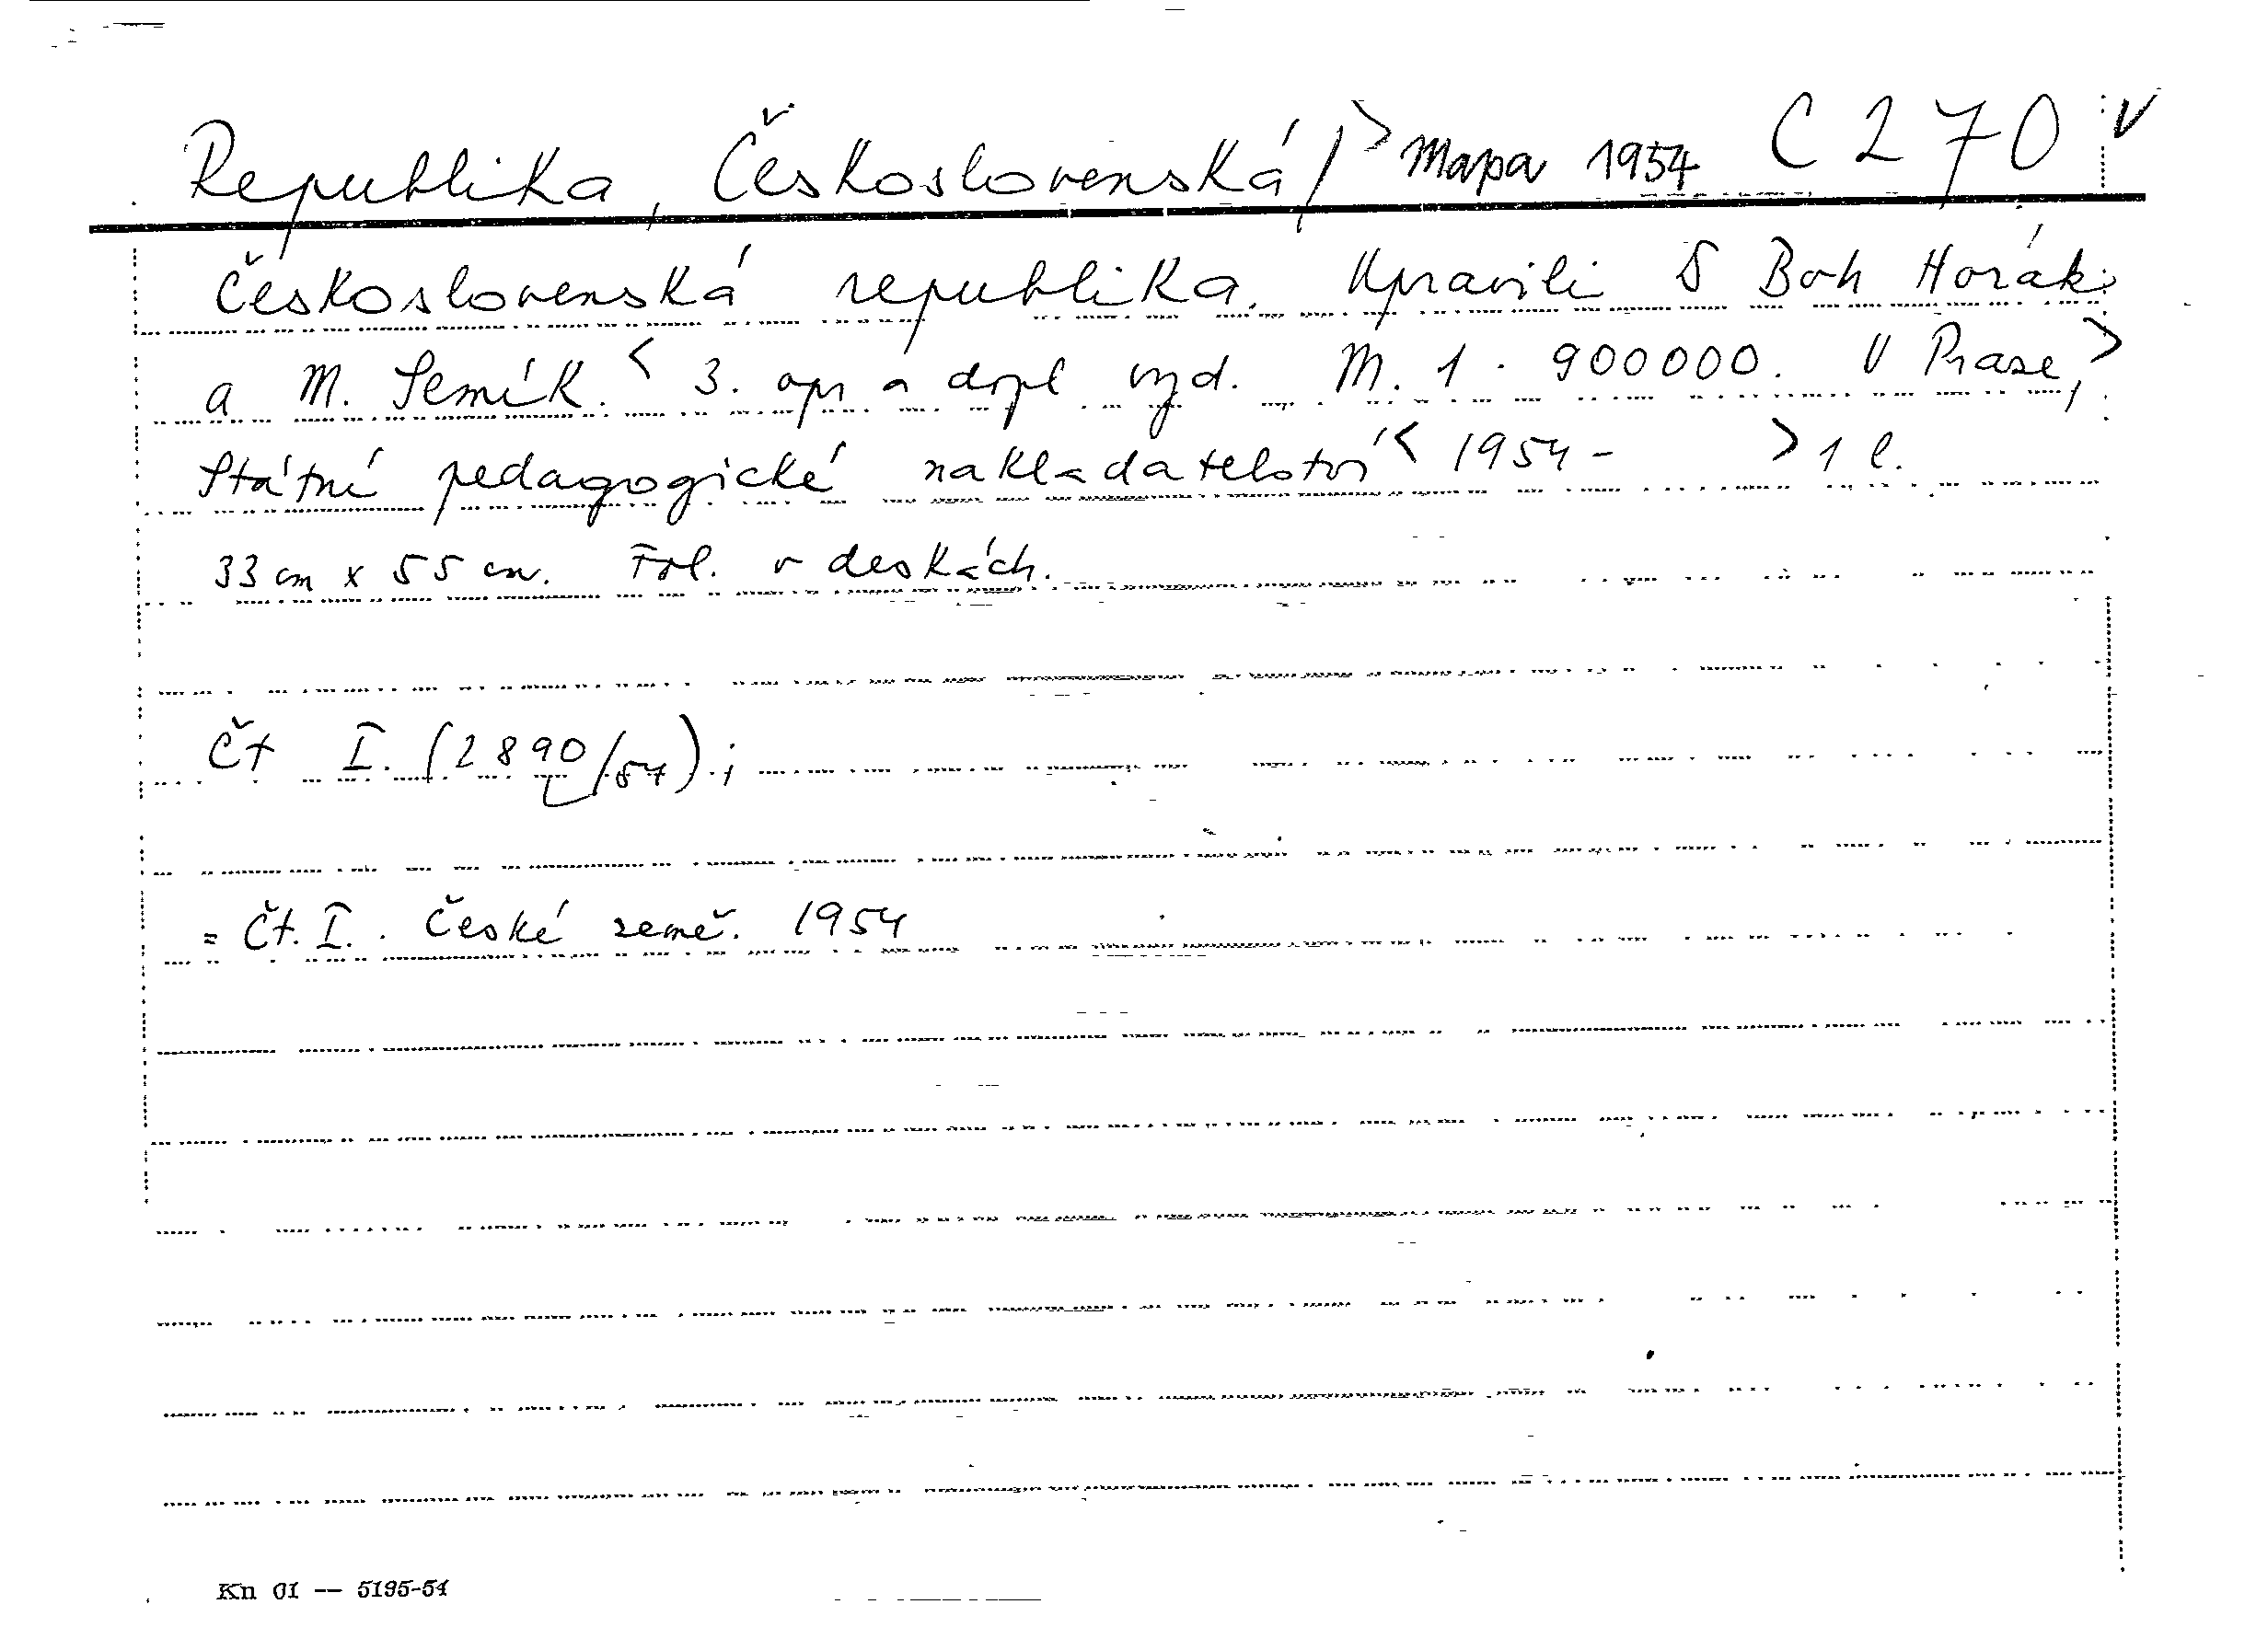 Republika, Československá / > Mapa 1954 C 270 v
Československá republika. Upravili Boh Horák
a M. Semík. < 3. opr a dopl vyd. M. 1 : 900000. V Praze, >
Státní pedagogické nakladatelství < 1954 - > 1 l.
33 cm x 55 cm. Fol. v deskách.
Čt I. (2890/57).;
= Čt. I. . České země. 1954
Kn 01 -- 5195-54